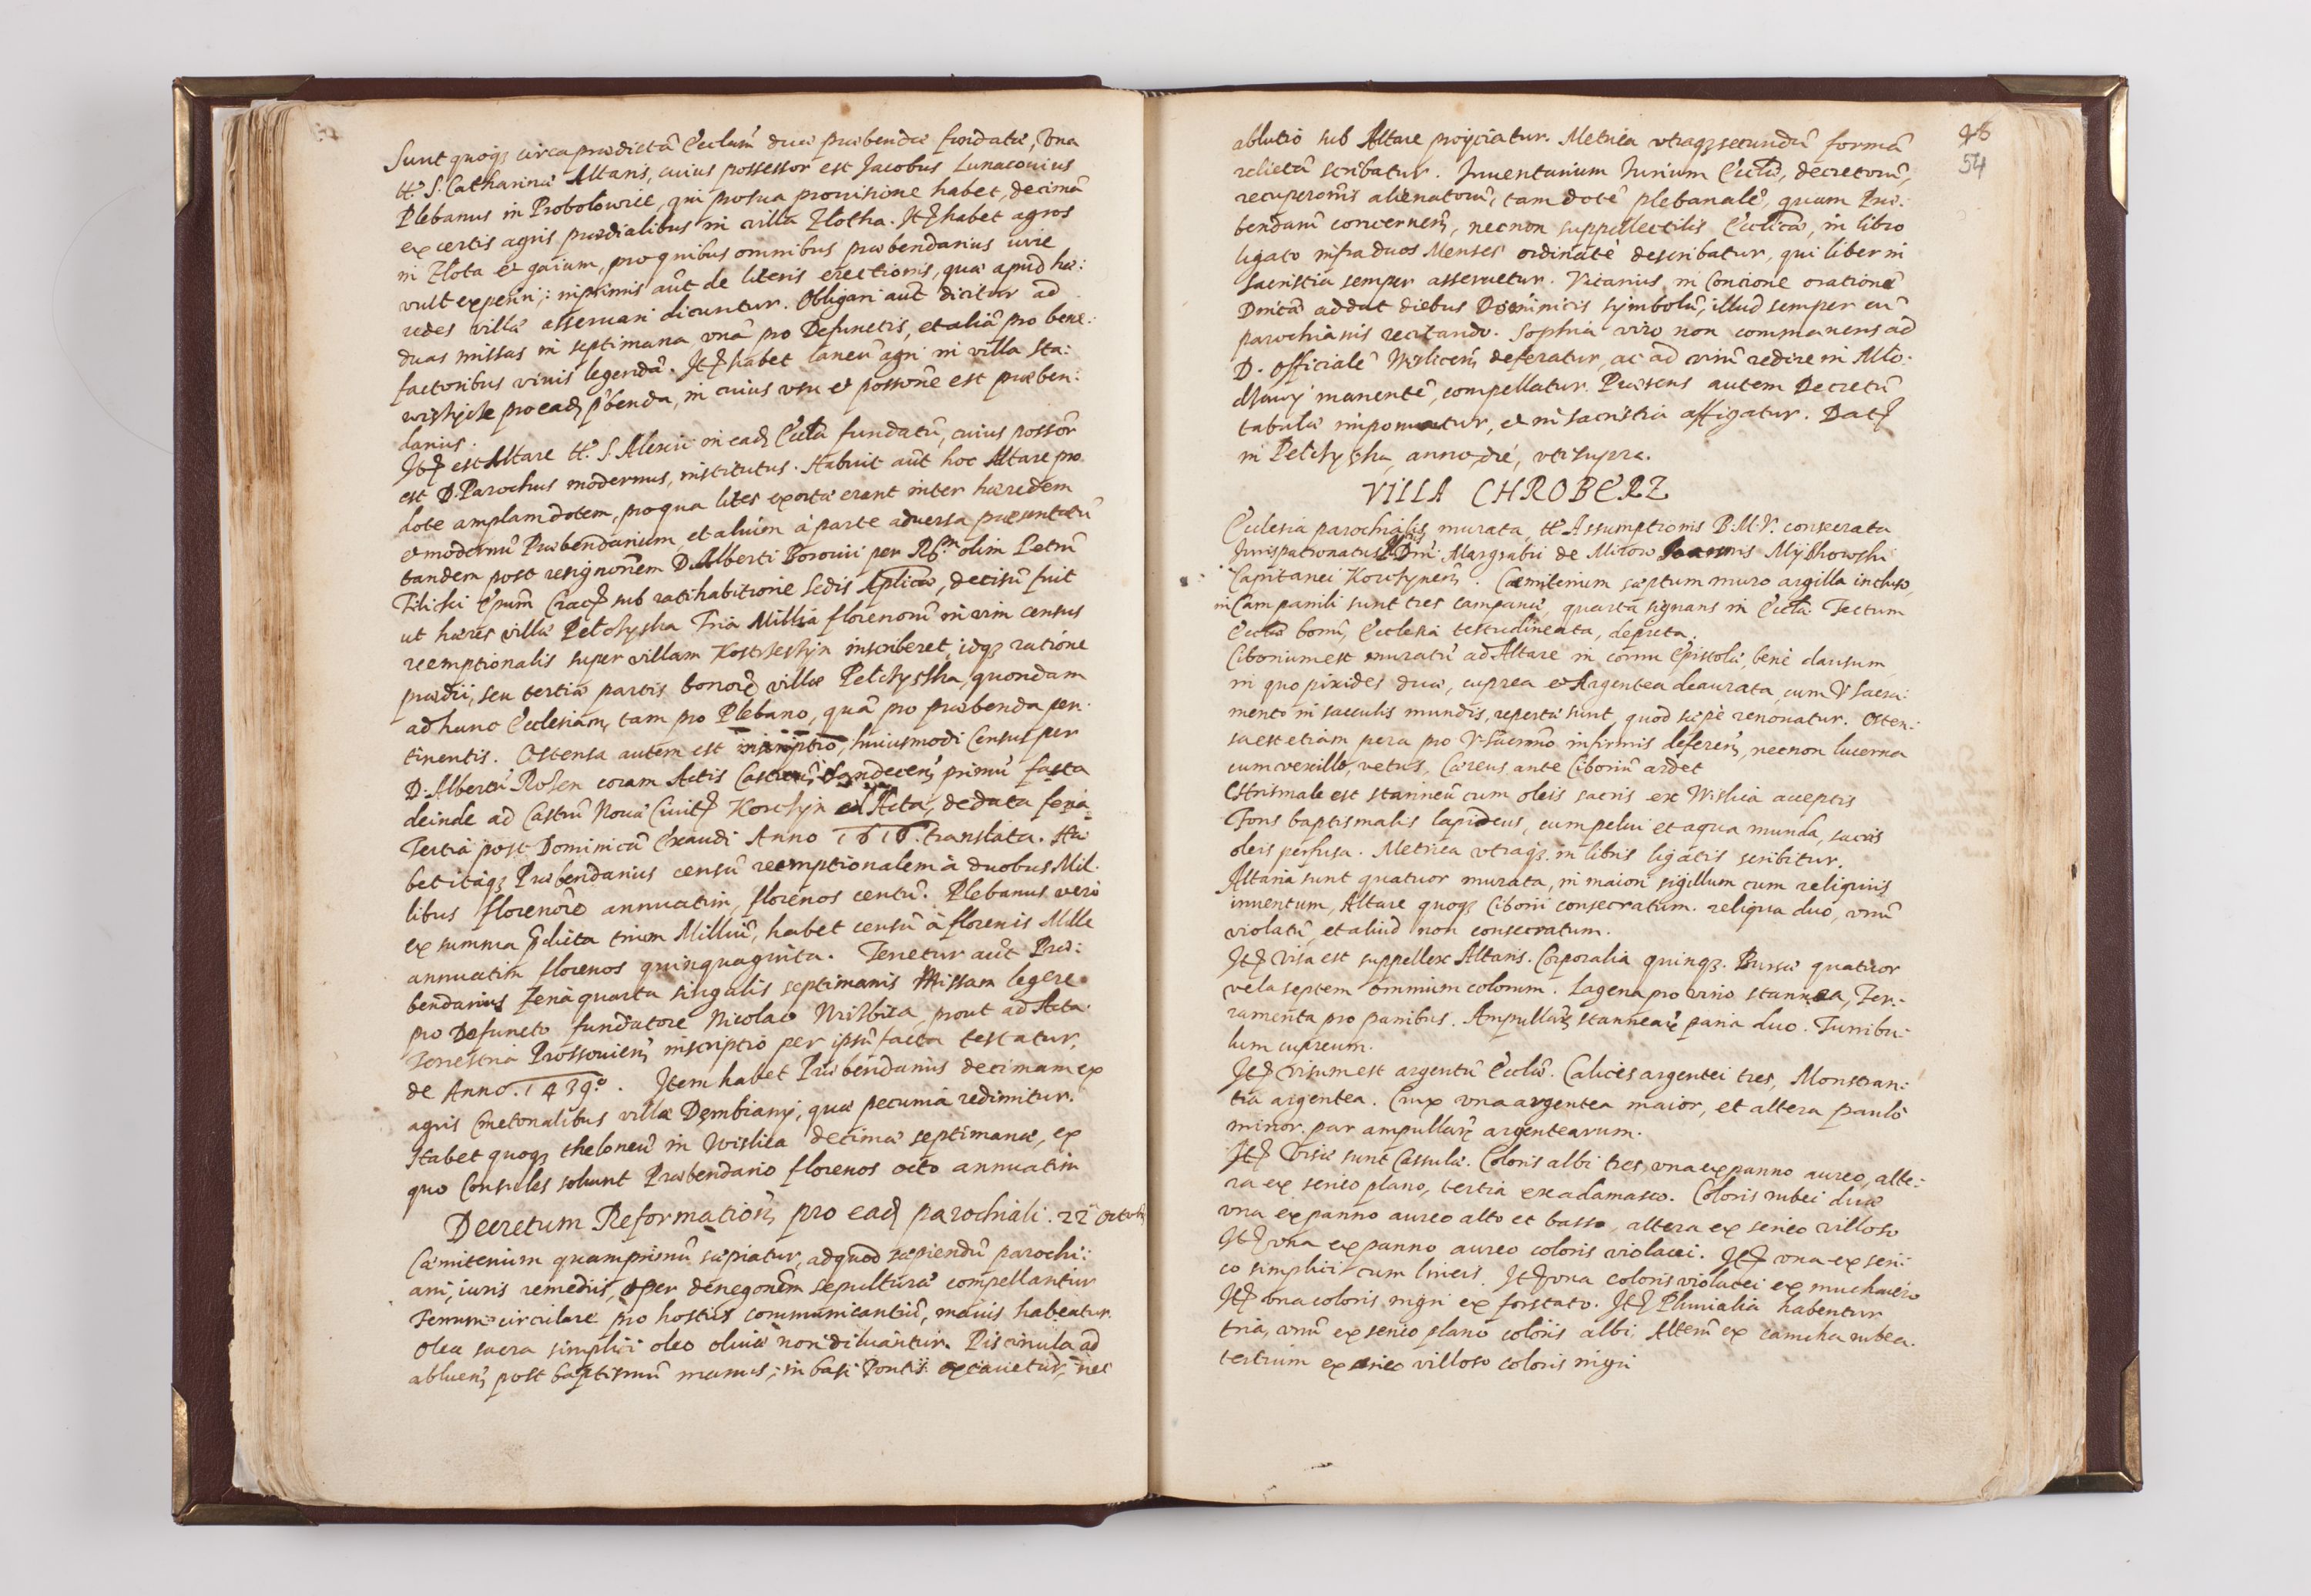 Sunt quoq; circa prædictā Eccłam duæ præbendæ fundatæ, Vna
tt: S. Catharinæ Altaris, cuius possessor est Jacobus Lunacouius
Plebanus in Probolowice, qui pro sua prouisione habet, decimā
ex certis agris prædialibus in villa Zlotha. Jt habet agros
in Zlota et gaium, pro quibus omnibus præbendarius iure
vult experiri; inprimis aūt de literis erectionis, quæ apud hæ:
redes villæ asseruari dicuntur. Obligari aūt dicitur ad
duas missas in septimana vnā pro Defunctis, et aliā pro bene:
factoribus viuis legendā. Jt habet laneū agri in villa Sta:
wiszycze pro ead p̄benda, in cuius vsu et possōne est præben:
darius.
Jt est Altare tt: S. Alexii in ead Eccła fundatū, cuius possōr
est D. Parochus modernus, institutus. Habuit aūt hoc Altare pro
dote amplam dotem, pro qua lites exortæ erant inter hæredem
et modernū Præbendarium, et alium à parte aduersa præsentatū
tandem post resignōnem D. Alberti Borouii per R. olim Petrū
Tilicki Ep̄um Crac sub ratihabitione Sedis Aplicæ, decisū fuit
ut hæres villæ Pełczyska Tria Millia florenorū in vim census
reemptionalis super villam Kostrzeszyn inscriberet, idq; ratione
prædii, seu tertiæ partis bonorū villæ Pełczyska, quondam
ad hunc Ecclesiam, tam pro Plebano, quā pro præbenda per:
tinentis. Ostensa autem est inscriptio, huiusmodi Census per
D. Albertū Rosen coram Actis Castreñ Sandeceñ primū facta
deinde ad Castrū Nouæ Ciuit Korczyn ad Acta, de data feria
Tertia post Dominicā Exaudi Anno 1616. translata. Ha:
bet itaq; Præbendarius censū reemptionalem à duobus Mil:
libus florenorū annuatim, florenos centū. Plebanus verò
ex summa p̄dicta trium Milliū, habet censū à florenis Mille
annuatim florenos quinquaginta. Tenetur aūt Præ:
bendarius feria quarta singulis septimanis Missam legere
pro Defuncto fundatore Nicolao Wislica, prout ad Acta
Terrestria Prossouieñ inscriptio per ipsū facta testatur,
de Anno. 1439.º. Jtem habet Præbendarius decimam ex
agris Cmetonalibus villæ Dębiany, quæ pecunia redimitur.
Habet quoq; theloneū in Wislica decimæ septimanæ, ex
quo Consules soluunt Præbendario florenos octo annuatim
Decretum Reformationis pro ead parochiali. 22 Octobris
Cæmiterium quamprimū sæpiatur, ad quod sæpiendū parochi:
ani, iuris remediis, et per denegōnem sepulturæ compellantur
Ferrum circulare pro hostiis communicantiū, maius habeatur
Olea sacra simplici oleo oliuæ non diluantur. Piscinula ad
ablueñ post baptismū manus, in basi Fontis excauetur, nec
48
54
ablutio sub Altare proijciatur. Metrica vtraq; secundū formā
relictā scribatur. Inuentarium Iurium Eccłæ, decretorū,
recuperōnis alienatorū, tam dotē plebanalē, quam Præ:
bendarū concerneñ, necnon suppellectilis Eccłicæ, in libro
ligato infra duos Menses ordinatè describatur, qui liber in
Sacristia semper asseruetur. Vicarius in Concione orationē
Dnicā addat diebus Dominicis Symbolū, illud semper cū
parochianis recitando. Sophia viro non commanens ad
D. Officialē Wisliceñ deferatur, ac ad virū redire in Mło:
dzawy manentē, compellatur. Præsens autem Decretū
tabulæ imponatur, et in sacristia affigatur. Dat
in Pełczyska, anno, die, vti supra.
VILLA CHROBERZ
Ecclesia parochialis murata, tt: Assumptionis B.M.V. consecrata
Jurispatronatus Illmi Dni Margrabii de Mirow Joannis Myszkowski
Capitanei Korczyneñ. Cæmiterium sæptum muro argilla incluso,
in Campanili sunt tres campanæ, quarta signans in Eccła. Tectum
Eccłæ bonū, Ecclesia testudineata, depicta.
Ciborium est muratū ad Altare in cornu Epistolæ, benè clausum
in quo pixides duæ, cuprea et Argentea deaurata, cum V. Sacra:
mento in sacculis mundis, repertæ sunt, quod sæpè renouatur. Osten:
sa est etiam pera pro V. Sacrmto infirmis defereñ, necnon lucerna
cum vexillo, vetus, Cæreus ante Ciboriū ardet
Chrismale est stanneū cum oleis sacris ex Wislica acceptis
Fons baptismalis lapideus, cum pelui et aqua munda, sacris
oleis perfusa. Metrica vtraq; in libris ligatis scribitur.
Altaria sunt quatuor murata, in maiori sigillum cum reliquiis
inuentum, Altare quoq; Ciborii consecratum. reliqua duo, vnū
violatū, et aliud non consecratum.
Jt visa est suppellex Altaris. Corporalia quinq;. Bursæ quatuor
vela septem omnium colorum. Lagena pro vino stannea, Fer:
ramenta pro panibus. Ampullarū stannearū paria duo. Turribu:
lum cupreum.
Jt visum est argentū Eccłæ. Calices argentei tres, Monstran:
tia argentea. Crux vna argentea maior, et altera paulò
minor. par ampullarū argentearum.
Jt Visæ sunt Casulæ. Coloris albi tres, vna ex panno aureo, alte:
ra ex serico plano, tertia ex adamasco. Coloris rubei duæ
vna ex panno aureo alto et basso, altera ex serico villoso
Jt vna ex panno aureo coloris violacei. Jt vna ex seri:
co simplici cum lineis. Jt vna coloris violacei ex muchaiero
Jt vna coloris nigri ex forstato. Jt Pluuialia habentur
tria, vnū ex serico plano coloris albi. Alterū ex camcha rubea.
tertium ex serico villoso coloris nigri